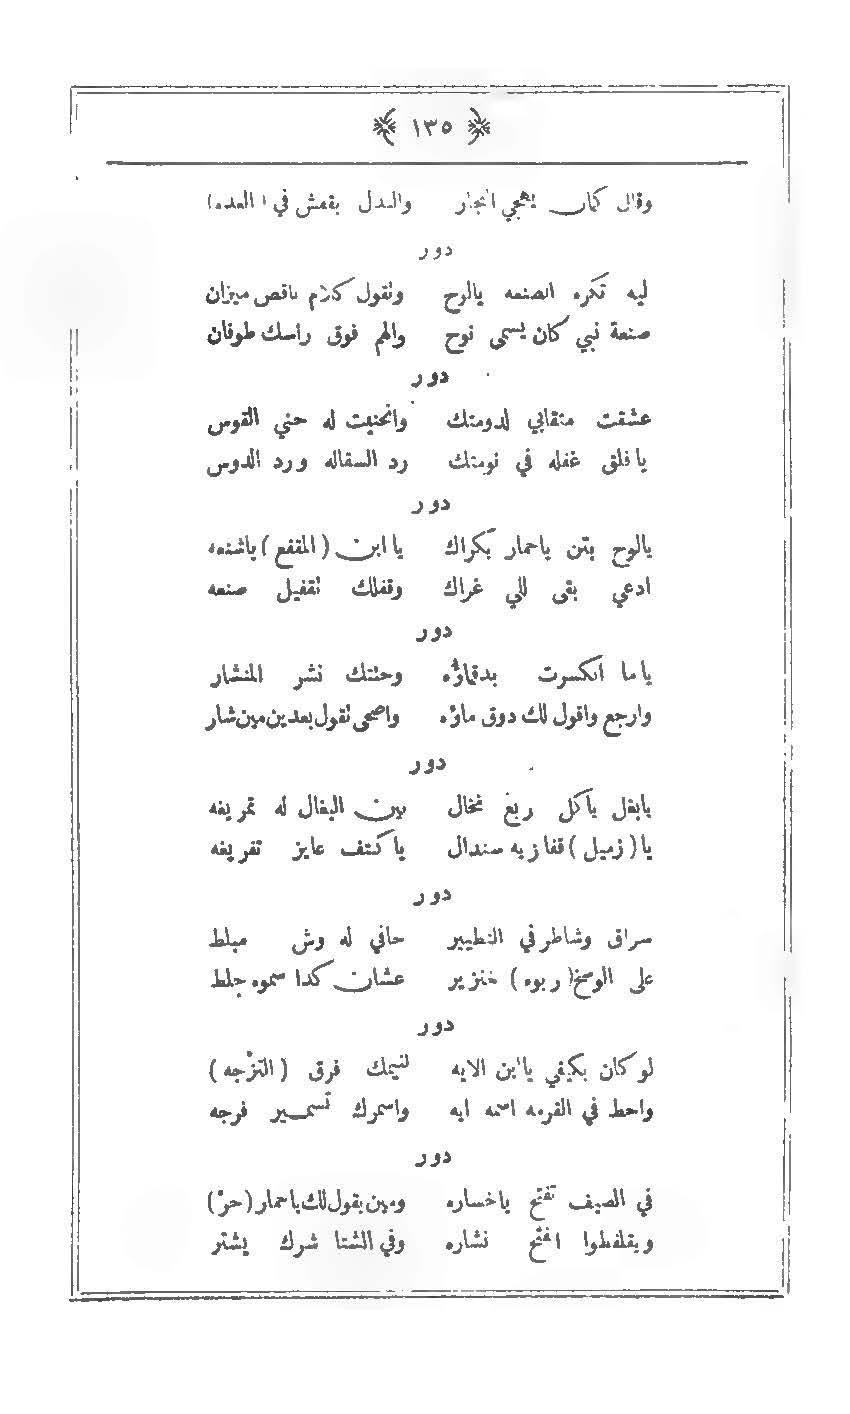 ١٣٥
وقال كمان يهجي النجار والبدل بقمش في (العده)
دور
ليه تكره الصنعه يالوح وتقول كلام ناقص ميزان
صنعة نبي كان يسمى نوح والهم فوق راسك طوفان
دور
عشقت متقابي لدومتك وانحنيت له حني القوس
يا فلق غفله في نومتك رد السقاله ورد الدوس
دور
يالوح بتن ياحمار بكراك يا ابن (المقفع) باشنعه
ادعي بقى للي غراك وقفلك تقفيل صنعه
دور
ياما انكسرت بدقماؤه وحتتك نشر المنشار
وارجع واقول لك دوق ماؤه واصحى تقول بعدين مين شار
دور
يابغل ياكل ربع نخال بين البغال له تمريغه
يا (زميل) قفا زيه صندال ياكتف عايز تفريغه
دور
سراق وشاطر في التطيير حافي له وش مبلط
على الوسخ (ربوه) خنزير عشان كدا سموه جلط
دور
لو كان بكيفي يا ابن الايه لنيمك فرق (التزجه)
واحط في القرمه اسمه ايه واسمرك تسمير فرجه
دور
في الصيف تفتح ياخساره ومين يقول لك ياحمار (حر)
ويقلفطوا الفتح نشاره وفي الشتا شرك يشتر